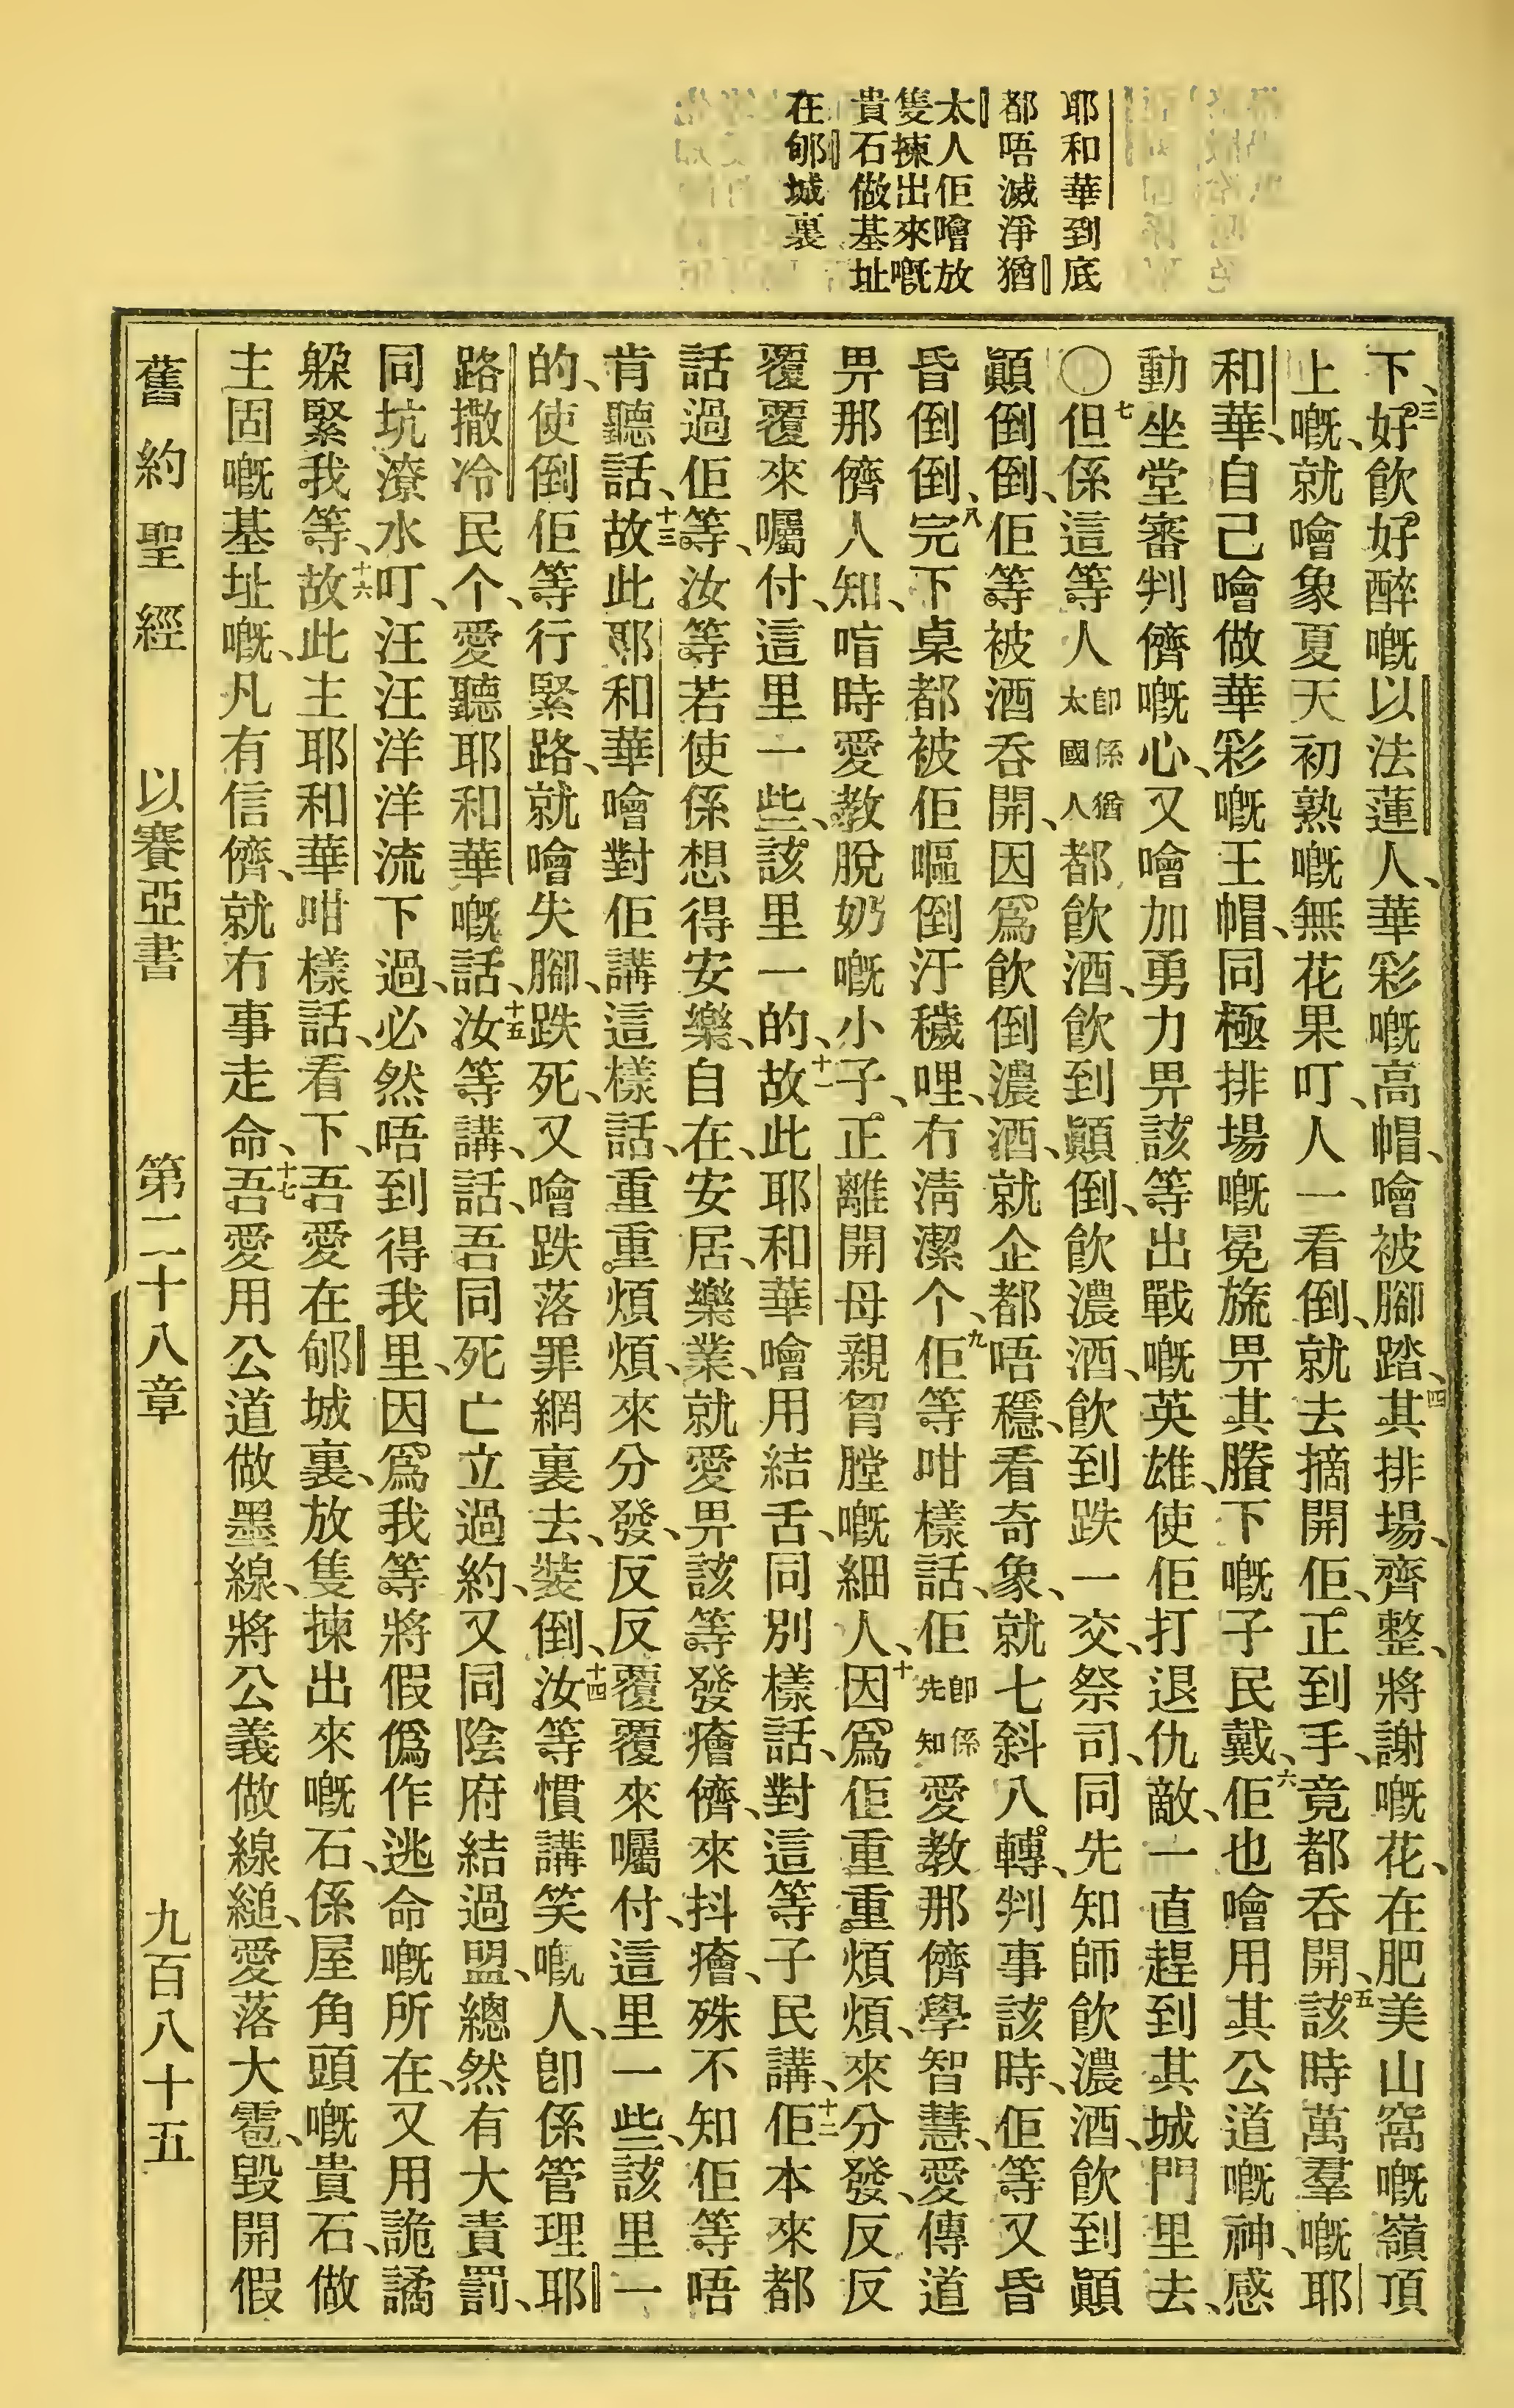 耶和華到底
都唔滅淨猶
太人佢噲放
隻揀出來嘅
貴石做基址
在郇城裏
下、三好飲好醉嘅以法蓮人、華彩嘅高帽、噲被腳踏、四其排場、齊整、將謝嘅花、在肥美山窩嘅嶺頂
上嘅、就噲象夏天初熟嘅無花果叮、人一看倒、就去摘開佢、正到手、竟都呑開、五該時萬羣嘅耶
和華、自己噲做華彩嘅王帽、同極排場嘅冕旒畀其賸下嘅子民戴、六佢也噲用其公道嘅神、感
動坐堂審判儕嘅心、又噲加勇力畀該等出戰嘅英雄、使佢打退仇敵、一直趕到其城門里去、
〇七但係這等人卽係猶太國人都飮酒、飮到顚倒、飮濃酒、飮到跌一交、祭司、同先知師飮濃酒、飮到顚
顚倒倒、佢等被酒呑開、因爲飮倒濃酒、就企都唔穩、看奇象、就七斜八轉、判事該時、佢等又昏
昏倒倒、八完下桌都被佢嘔倒汙穢哩、冇淸潔个、九佢等咁樣話、佢卽係先知愛教那儕學智慧、愛傳道
畀那儕人知、唷時愛教脫奶嘅小子、正離開母親胷膛嘅細人、十因爲佢重重煩煩、來分發、反反
覆覆來囑付、這里一些、該里一的、十一故此耶和華噲用結舌、同別樣話、對這等子民講、十二佢本來都
話過佢等、汝等若使係想得安樂、自在、安居、樂業、就愛畀該等發㾮儕、來抖㾮、殊不知佢等唔
肯聽話、十三故此耶和華噲對佢講這樣話、重重煩煩、來分發、反反覆覆來囑付、這里一些、該里一
的、使倒佢等行緊路、就噲失腳、跌死、又噲跌落罪網裏去、裝倒、十四汝等慣講笑嘅人、卽係管理耶
路撒冷民个、愛聽耶和華嘅話、十五汝等講、話吾同死亡立過約、又同陰府結過盟、總然有大責罰、
同坑潦水叮、汪汪洋洋流下過、必然唔到得我里、因爲我等將假僞作逃命嘅所在、又用詭譎
躲緊我等、十六故此主耶和華咁樣話、看下、吾愛在郇城裏、放隻揀出來嘅石、係屋角頭嘅貴石、做
主固嘅基址嘅、凡有信儕、就冇事走命、十七吾愛用公道做墨線、將公義做線縋、愛落大雹、毀開假
舊約聖經　以賽亞書　第二十八章　九百八十五